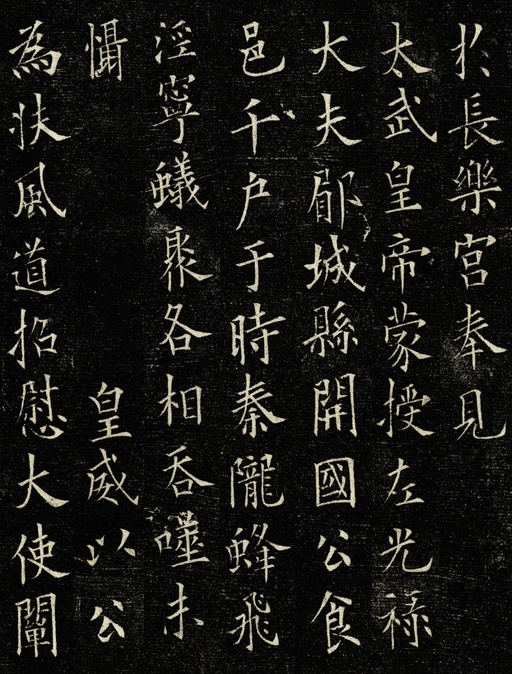 於長樂宮奉見
太武皇帝蒙授左光祿
大夫郿城縣開國公食
邑千戶于時秦隴蜂飛
涇寧蟻聚各相吞噬未
懾皇威以公
為扶風道招慰大使闡